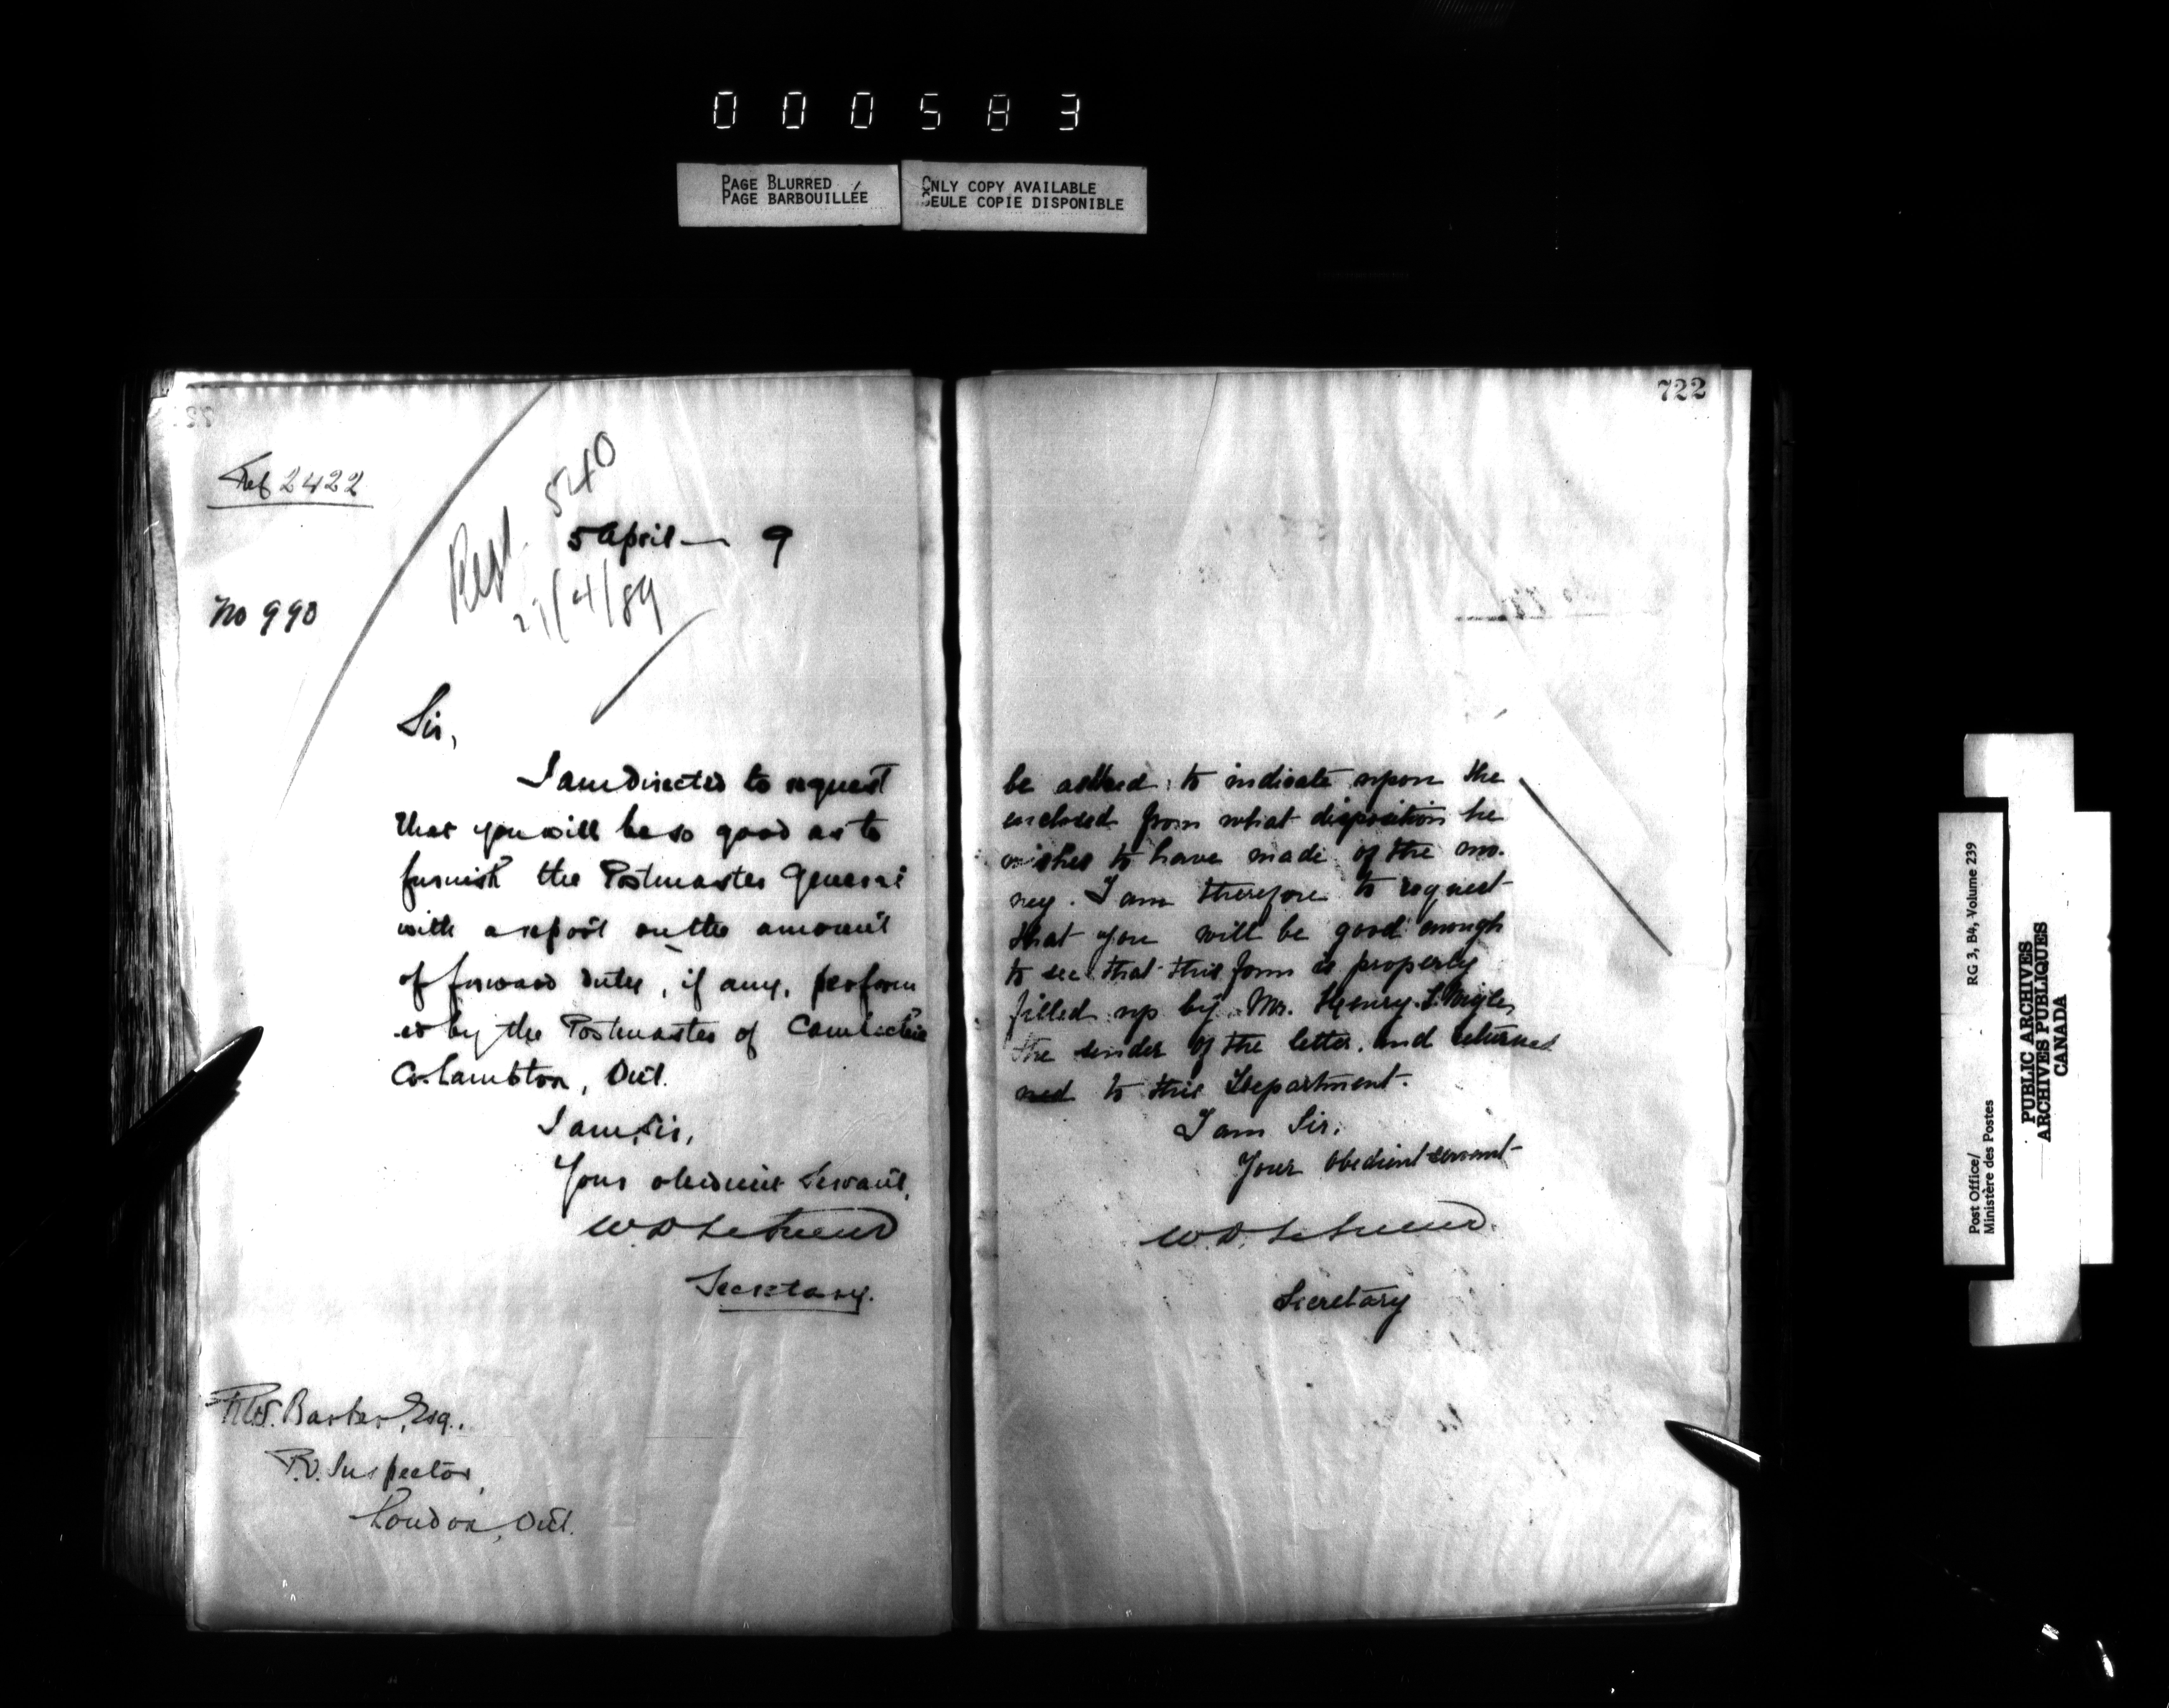 000583
PAGE BLURRED
PAGE BARBOUILLÉE
ONLY COPY AVAILABLE
SEULE COPIE DISPONIBLE
Ref 2422
540
5 April 9
21/4/89
No 990
Sir,
I am directed to request
that you will be so good as to
furnish the Postmaster General
with a report on the amount
of forward duty, if any, perform
ed by the Postmaster of Camlachie
Co. Lambton, Ont.
I am, Sir,
Your obedient Servant,
W. D. LeSueur
Secretary.
Barker, Esq.,
P.O. Inspector,
London, Ont.
722
be asked to indicate upon the
enclosed form what disposition he
wishes to have made of the mo-
ney. I am therefore to request
that you will be good enough
to see that this form is properly
filled up by Mr. Henry
the sender of the letter, and returned
ned to this Department.
I am Sir,
Your obedient servant
W. D. LeSueur.
Secretary
Post Office/
Ministère des Postes
RG 3, B4, Volume 239
PUBLIC ARCHIVES
ARCHIVES PUBLIQUES
CANADA